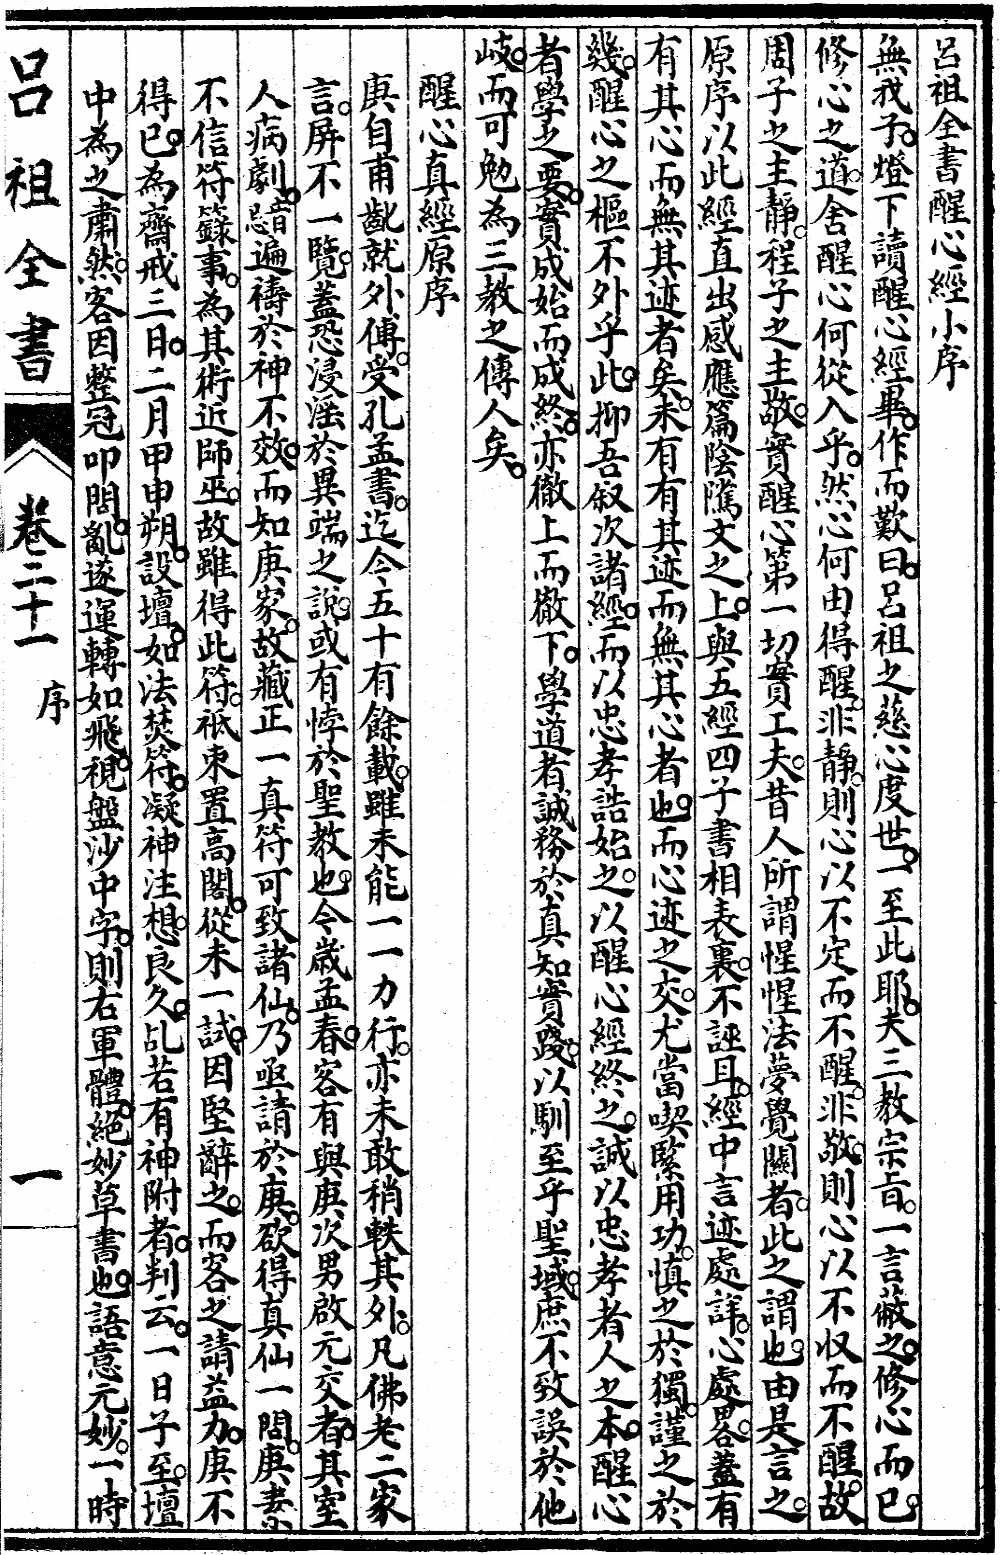 呂祖全書醒心經小序
無我子。燈下讀醒心經畢。作而歎曰。呂祖之慈心度世。一至此耶。夫三教宗旨。一言蔽之。修心而已。
修心之道。舍醒心何從入乎。然心何由得醒。非靜。則心以不定而不醒。非敬。則心以不收而不醒。故
周子之主靜。程子之主敬。實醒心第一切實工夫。昔人所謂惺惺法夢覺關者。此之謂也。由是言之。
原序以此經直出感應篇陰隲文之上。與五經四子書相表裏。不誣。且經中言迹處詳。心處畧。蓋有
有其心而無其迹者矣。未有有其迹而無其心者也。而心迹之交。尤當喫緊用功。慎之於獨。謹之於
幾。醒心之樞不外乎此。抑吾叙次諸經。而以忠孝誥始之。以醒心經終之。誠以忠孝者人之本。醒心
者學之要。實成始而成終。亦徹上而徹下。學道者誠務於真知實踐。以馴至乎聖域。庶不致誤於他
岐。而可勉為三教之傳人矣。
醒心真經原序
庚自甫齔就外傅。受孔孟書。迄今五十有餘載。雖未能一一力行。亦未敢稍軼其外。凡佛老二家
言。屏不一覽。蓋恐浸淫於異端之說。或有悖於聖教也。今歲孟春。客有與庚次男啟元交者。其室
人病劇。醫遍禱於神不效。而知庚家。故藏正一真符可致諸仙。乃亟請於庚。欲得真仙一問。庚素
不信符籙事。為其術近師巫。故雖得此符。祇束置高閣。從未一試。因堅辭之。而客之請益力。庚不
得已。為齋戒三日。二月甲申朔。設壇。如法焚符。凝神注想。良久。乩若有神附者。判云。一日子至。壇
中為之肅然。客因整冠叩問。亂遂運轉如飛。視盤沙中字。則右軍體。絕妙草書也。語意元妙。一時
呂祖全書
卷二十一
序
一